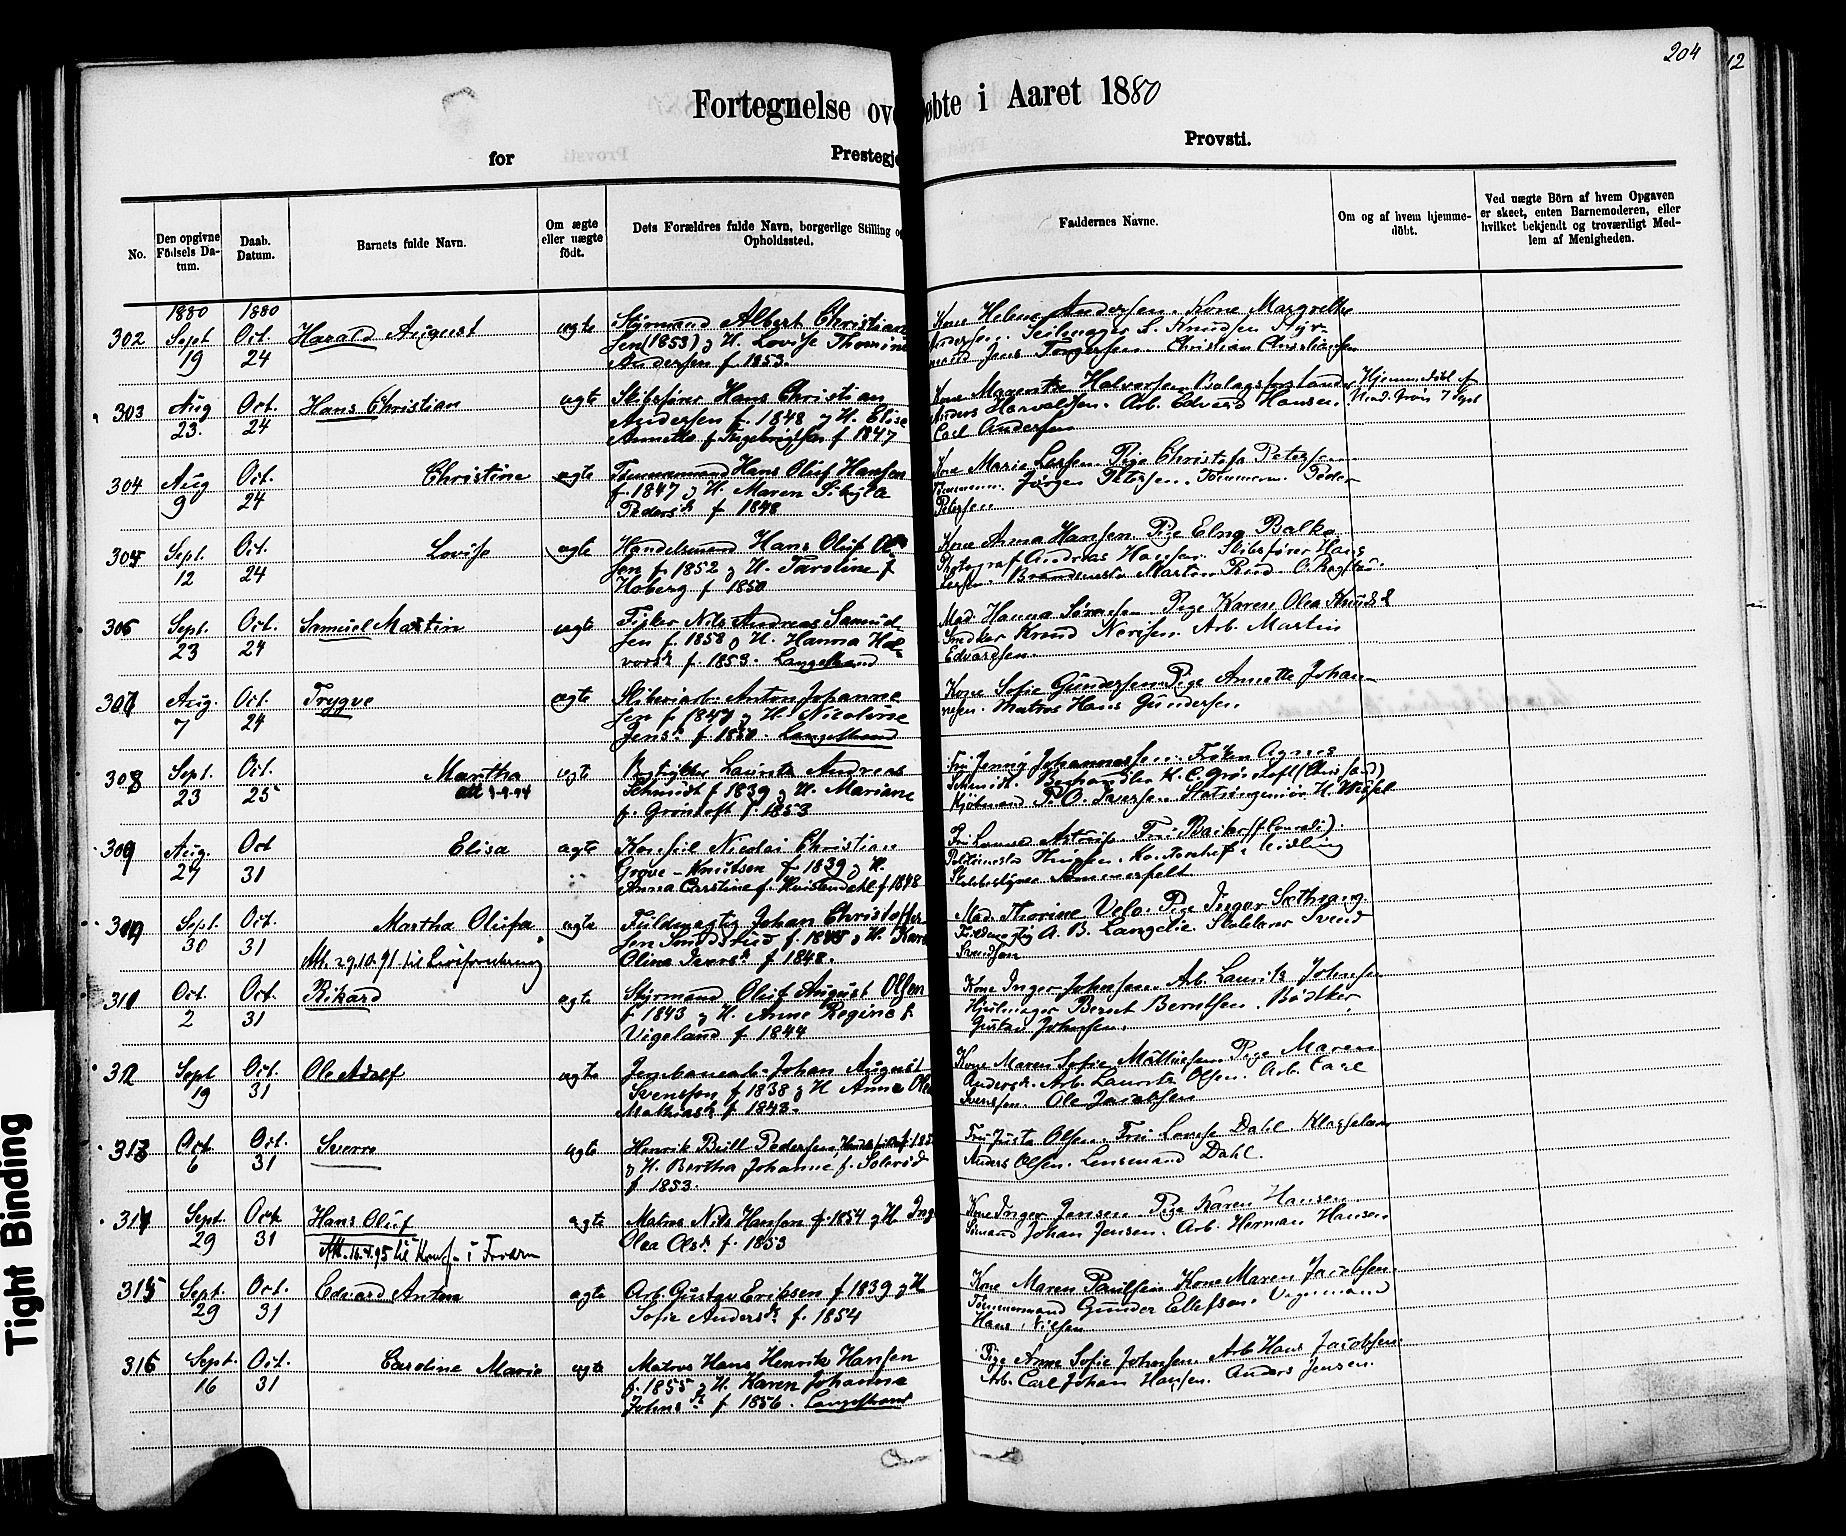 204
12
Fortegnelse ov øbte i Aaret 1880
for Prestegje Provsti.
No.
Den opgivne Födsels Da-tum.
Daab. Datum.
Barnets fulde Navn.
Om ægte eller uægte födt.
Dets Forældres fulde Navn, borgerlige Stilling og Opholdssted.
Faddernes Navne.
Om og af hvem hjemme-döbt.
Ved uægte Börn af hvem Opgaven er skeet, enten Barnemoderen, eller hvilket bekjendt og troværdigt Med-lem af Menigheden.
1880 1880
302 Sept 19 Oct. 24 Harald August ægte Styrmand Albert Christian
sen (1853) g H. Lovise Thomine
Andersen f. 1853.
Kone Helene Andersen. Kone Margrethe
Andersen. Seilmager S. Knudsen Styr-
mand Jens Torgersen Christian Christiansen
303 Aug 23. Oct. 24 Hans Christian ægte Skibsfører Hans Christian
Andersen f. 1848 g H. Elise
Annette f. Ingebrigtsen f 1847
Kone Margrethe Halvorsen
Anders Harvaldsen. Arb. Edvard Hansen.
Carl Andersen
Hjemmedøbt af
304 Aug 9 Oct. 24 Christine ægte Tømmermand Hans Oluf Hansen
f. 1847 g H. Maren Sibylla
Pedersd. f 1848
Kone Marie Larsen Pige Christofa Petersen
Tömmerm. Jørgen Petersen. Tömmerm. Peder
Petersen
305 Sept. 12 Oct. 24 Lovise ægte Handelsmand Hans Oluf Ol
sen f. 1852 g H. Caroline f
Hoberg f 1850
Kone Anna Hansen Pige Elna Balke
Photograf Andreas Hansen. Skibsfører Hans
Larsen. Martin Rud
306 Sept. 23 Oct. 24 Samuel Martin ægte Fisker Nils Andreas Samuel
sen f. 1858 g H. Hanna Hal-
vorsd. f. 1853. Langestrand
Mad Hanna Sørensen Pige Karen Olea
Snedker Knud Nerisen. Arb. Martin
Edvardsen.
307 Aug. 7 Oct. 24 Trygve ægte Skibsarb. Anton Johanne
sen f. 1847 g H. Nicoline
Jensd. f 1850. Langestrand
Kone Sofie Gundersen Pige Annette Johan-
nesen. Matros Hans Gundersen
308 Sept. 23 Oct. 25 Martha ægte Bogtykker Lauritz Andreas
att 1-9-94
Schmidt f 1839 g H. Mariane
f. Grøntoft f. 1853
Fru Jenny Johannessen. Frøken Agnes
Schmidt. Boghandler H. C. Grøntoft
Kjøbmand P. O. Iversen Statsingeniør H.
309 Aug. 27 Oct 31 Elisa ægte Konseil Nicolai Christian
Grove-Knutsen f 1839 g H.
Anna Carstine f. Hvistendahl f 1848
Fru Lovise Astrup Fru
Politimester
Sommerfelt
310 Sept. 30 Oct. 31 Martha Olufa ægte Fuldmægtig Johan Christoffer
Att. 29.10.91 til Livsforsikring
sen f. 1845 g H. Karen
Olina Iversd. f 1848.
Mad. Thorine Velo. Pige Inger
Fuldmægtig A. B. Langelie. Svend
Svendsen
311 Oct. 2 Oct. 31 Rikard ægte Styrmand Oluf August Olsen
f. 1843 g H. Anne Regine f.
Vigeland f 1844
Kone Inger Johnsen. Arb. Laurits Johnsen
Hjulmager Bernt Berntsen. Bødker
Gustav Johnsen.
312 Sept 19 Oct. 31 Ole Adolf ægte Jernbanearb. Johan August
Svensson f 1838 g H. Anna Olea
Mathiasd. f 1843.
Kone Maren Sofie Mathiesen Pige Maren
Andersd. Arb. Lauritz Olsen. Arb. Carl
Svensson. Ole Jacobsen
313 Oct. 6 Oct. 31 Sverre ægte Henrik Brill Pedersen
g H. Bertha Johanne f. Solerød
f 1853.
Fru Justa Olsen. Fru Lovise Dahl.
Anders Olsen. Lensmand Dahl.
314 Sept. 29 Oct. 31 Hans Oluf ægte Matros Nils Hansen f 1854 g H Inge
Att. 16.4.95 til Konf. i
Olea Olsd. f. 1853
Kone Inger Jensen Pige Karen Hansen.
Sömand Johan Jensen. Arb. Herman Hansen
315 Sept. 29 Oct. 31 Edvard Anton ægte Arb. Gustav Eriksen f 1839 g H
Sofie Andersd. f. 1854
Kone Maren Paulsen Kone Maren Jacobsen.
Tömmermand Gunder Ellefsen.
Hans Nilsen
316 Sept. 16 Oct. 31 Caroline Marie ægte Matros Hans Henrik Hansen
f. 1855 g H. Karen Johanna
Johnsd. f 1856. Langestrand
Pige Anne Sofie Johnsen. Arb Hans Jacobsen.
Arb. Carl Johan Hansen. Anders Jensen.
Tight Binding